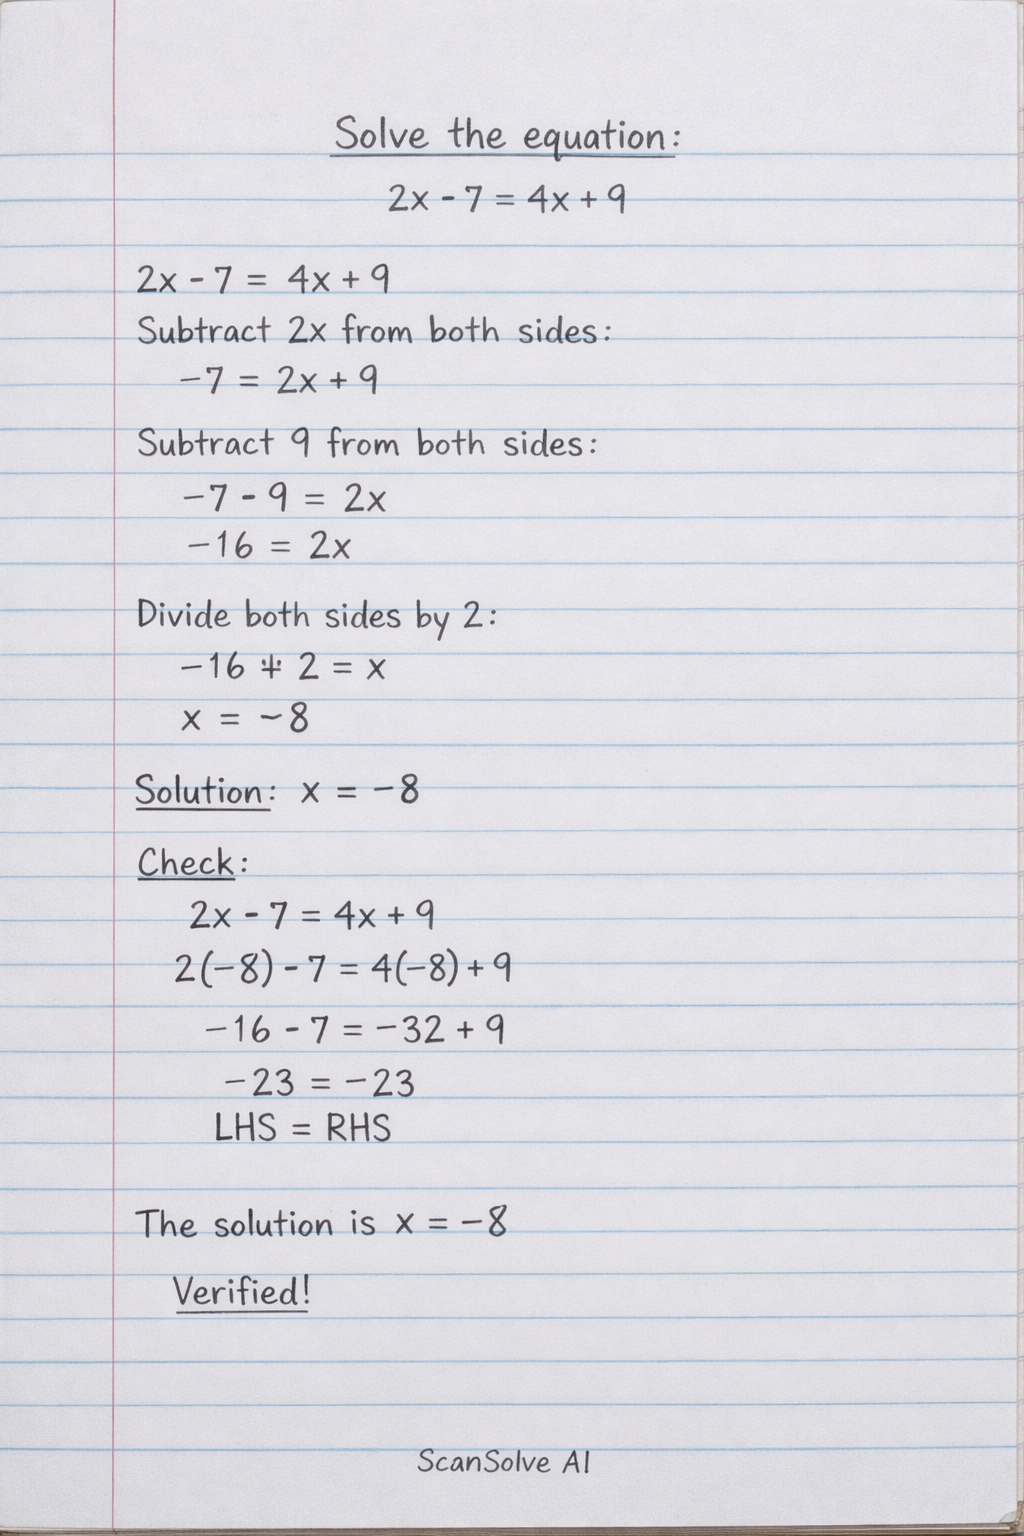 Solve the equation:
2x - 7 = 4x + 9
2x - 7 = 4x + 9
Subtract 2x from both sides:
-7 = 2x + 9
Subtract 9 from both sides:
-7 - 9 = 2x
-16 = 2x
Divide both sides by 2:
-16 ÷ 2 = x
x = -8
Solution: x = -8
Check:
2x - 7 = 4x + 9
2(-8) - 7 = 4(-8) + 9
-16 - 7 = -32 + 9
-23 = -23
LHS = RHS
The solution is x = -8
Verified!
ScanSolve AI